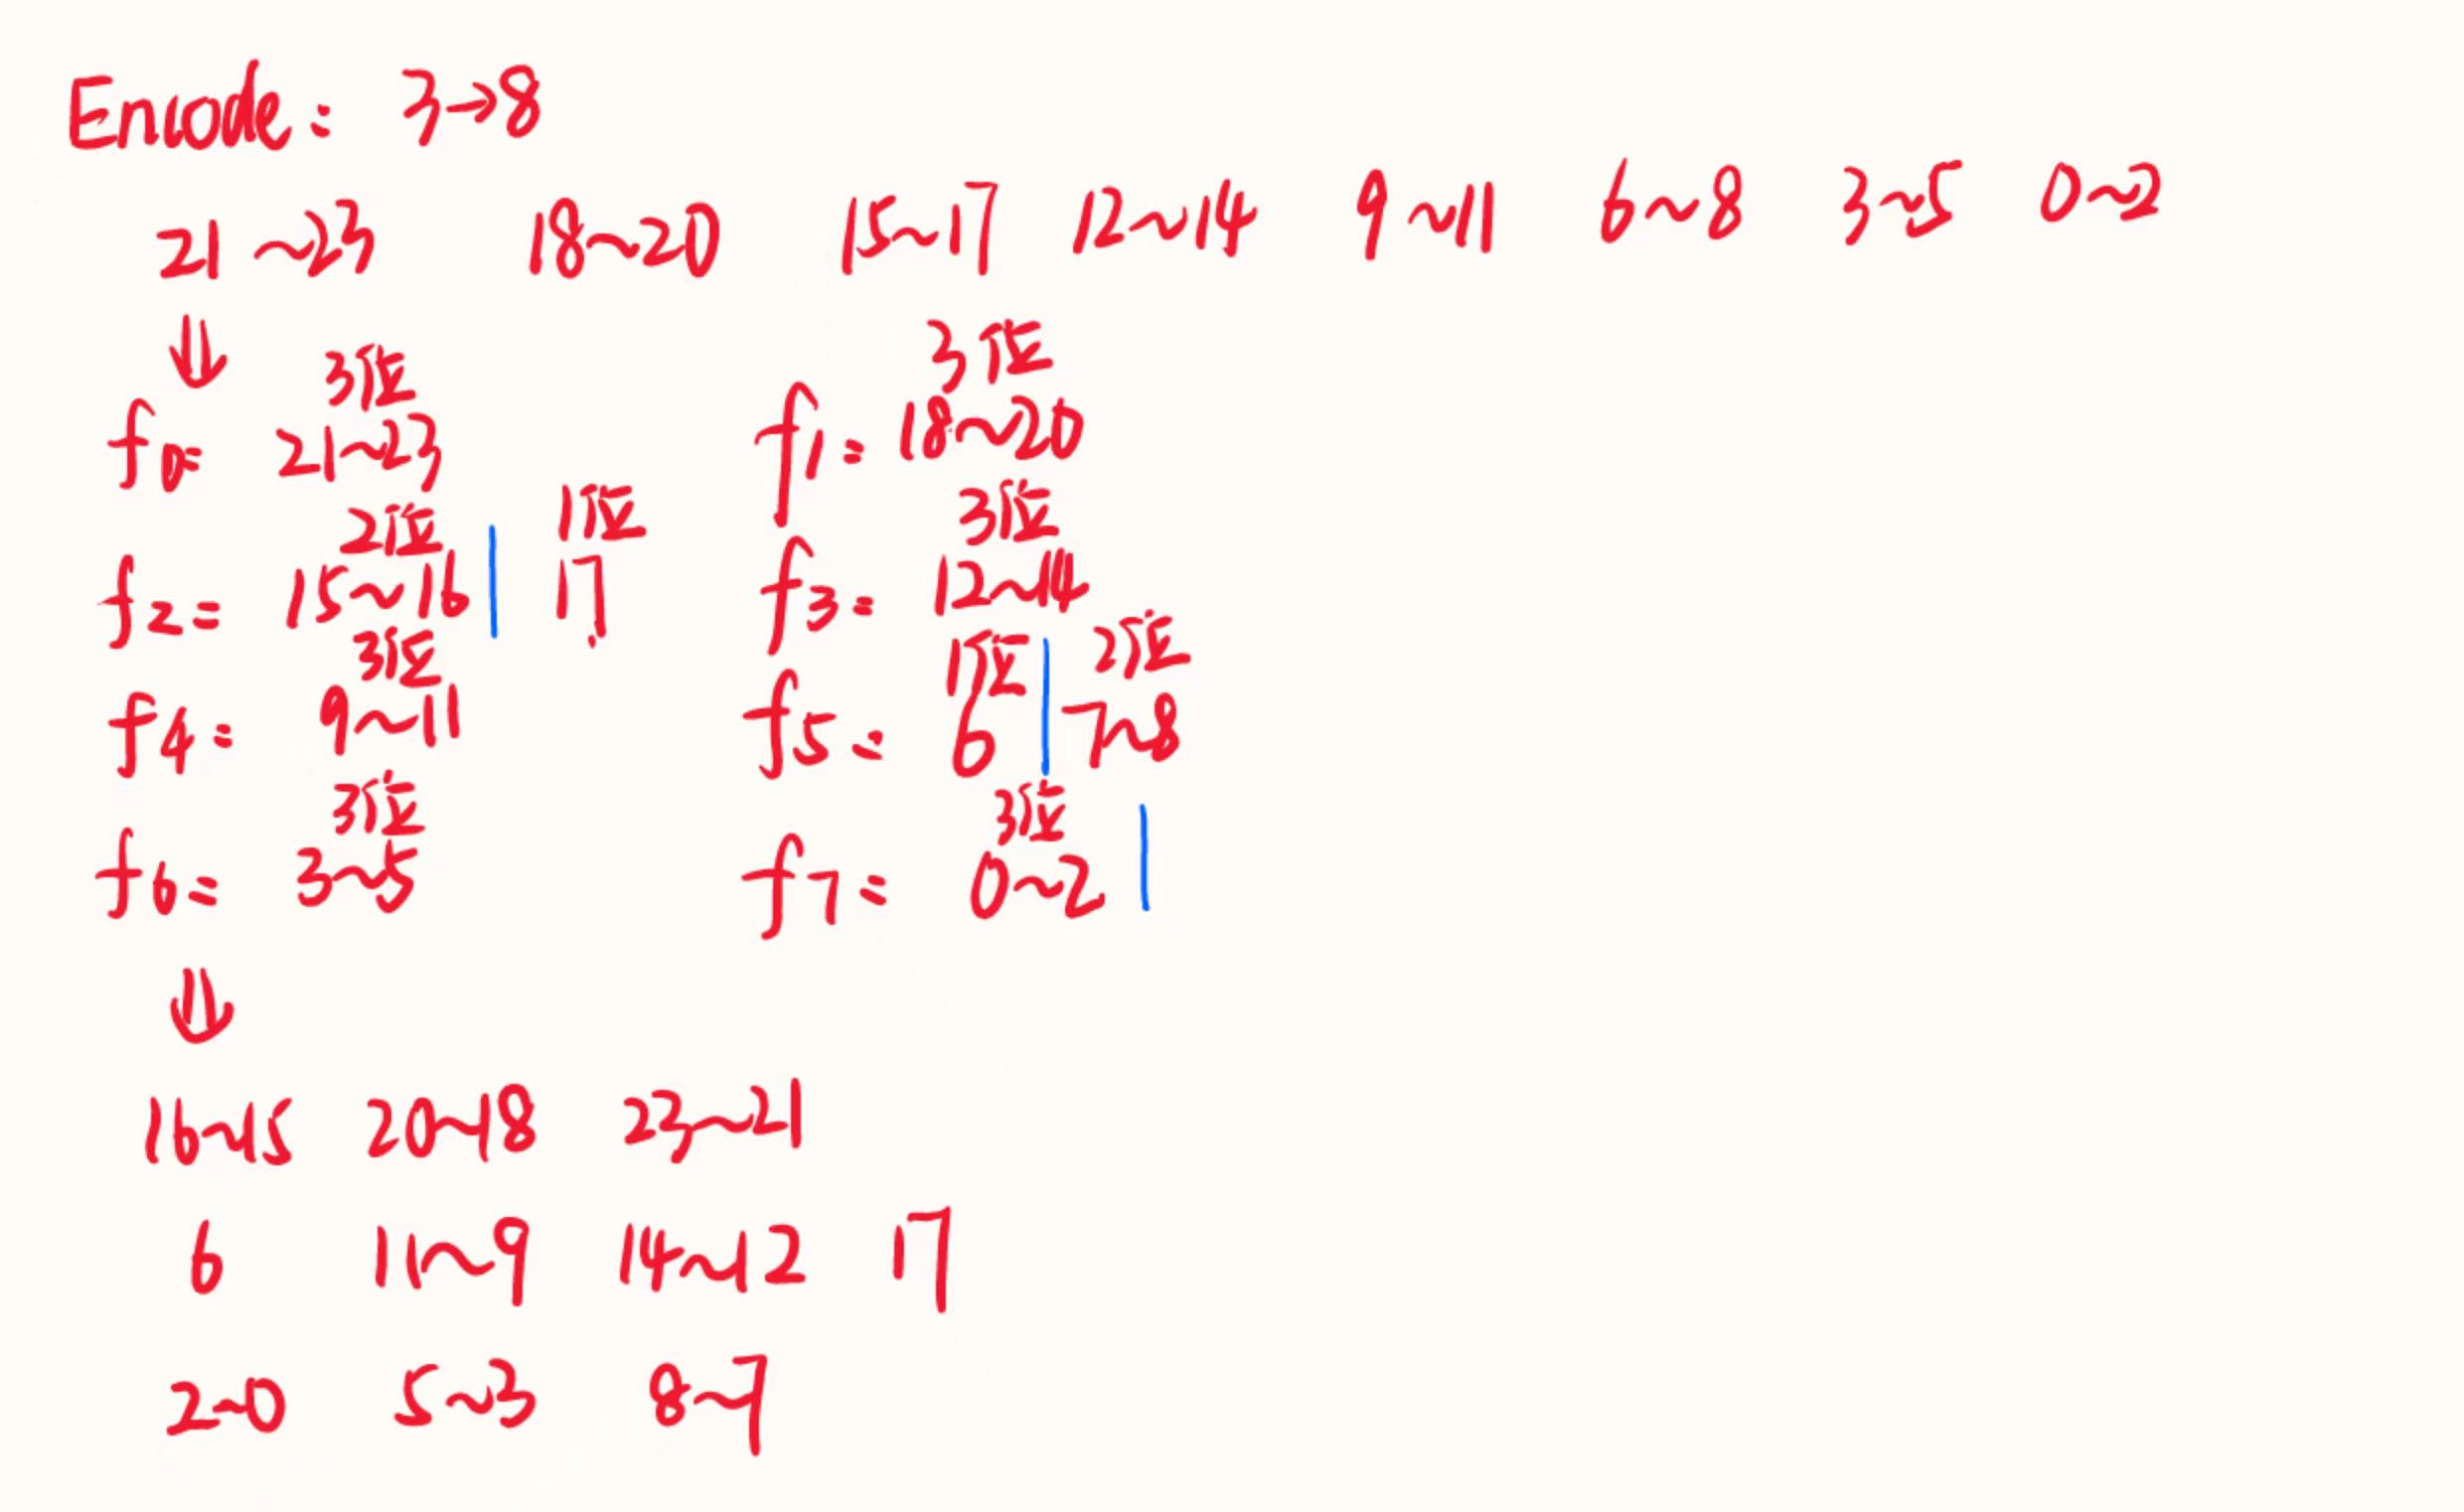 Encode: 3→8
21~23 18~20 15~17 12~14 9~11 6~8 3~5 0~2
⇓
3位 3位
f0= 21~23 f1= 18~20
2位 1位 3位
f2= 15~16 | 17 f3= 12~14
3位 1位 2位
f4= 9~11 f5= 6 | 7~8
3位 3位
f6= 3~5 f7= 0~2 |
⇓
16~15 20~18 23~21
6 11~9 14~12 17
2~0 5~3 8~7